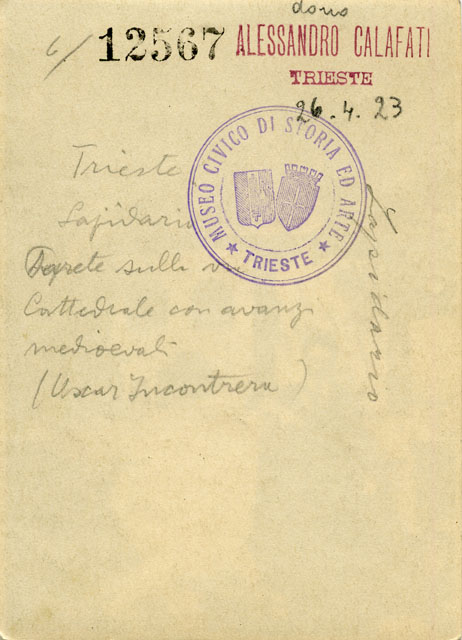 dono
6/ 12567 ALESSANDRO CALAFATI
TRIESTE
26.4.23
MUSEO CIVICO DI STORIA ED ARTE
★ TRIESTE ★
Trieste
Lapidario
sulla via
Cattedrale con avanzi
medioevali
(Oscar Incontrera)
Lapidario